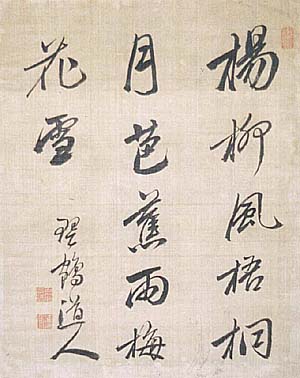 楊柳風梧桐
月芭蕉雨梅
花雪
鶴道人